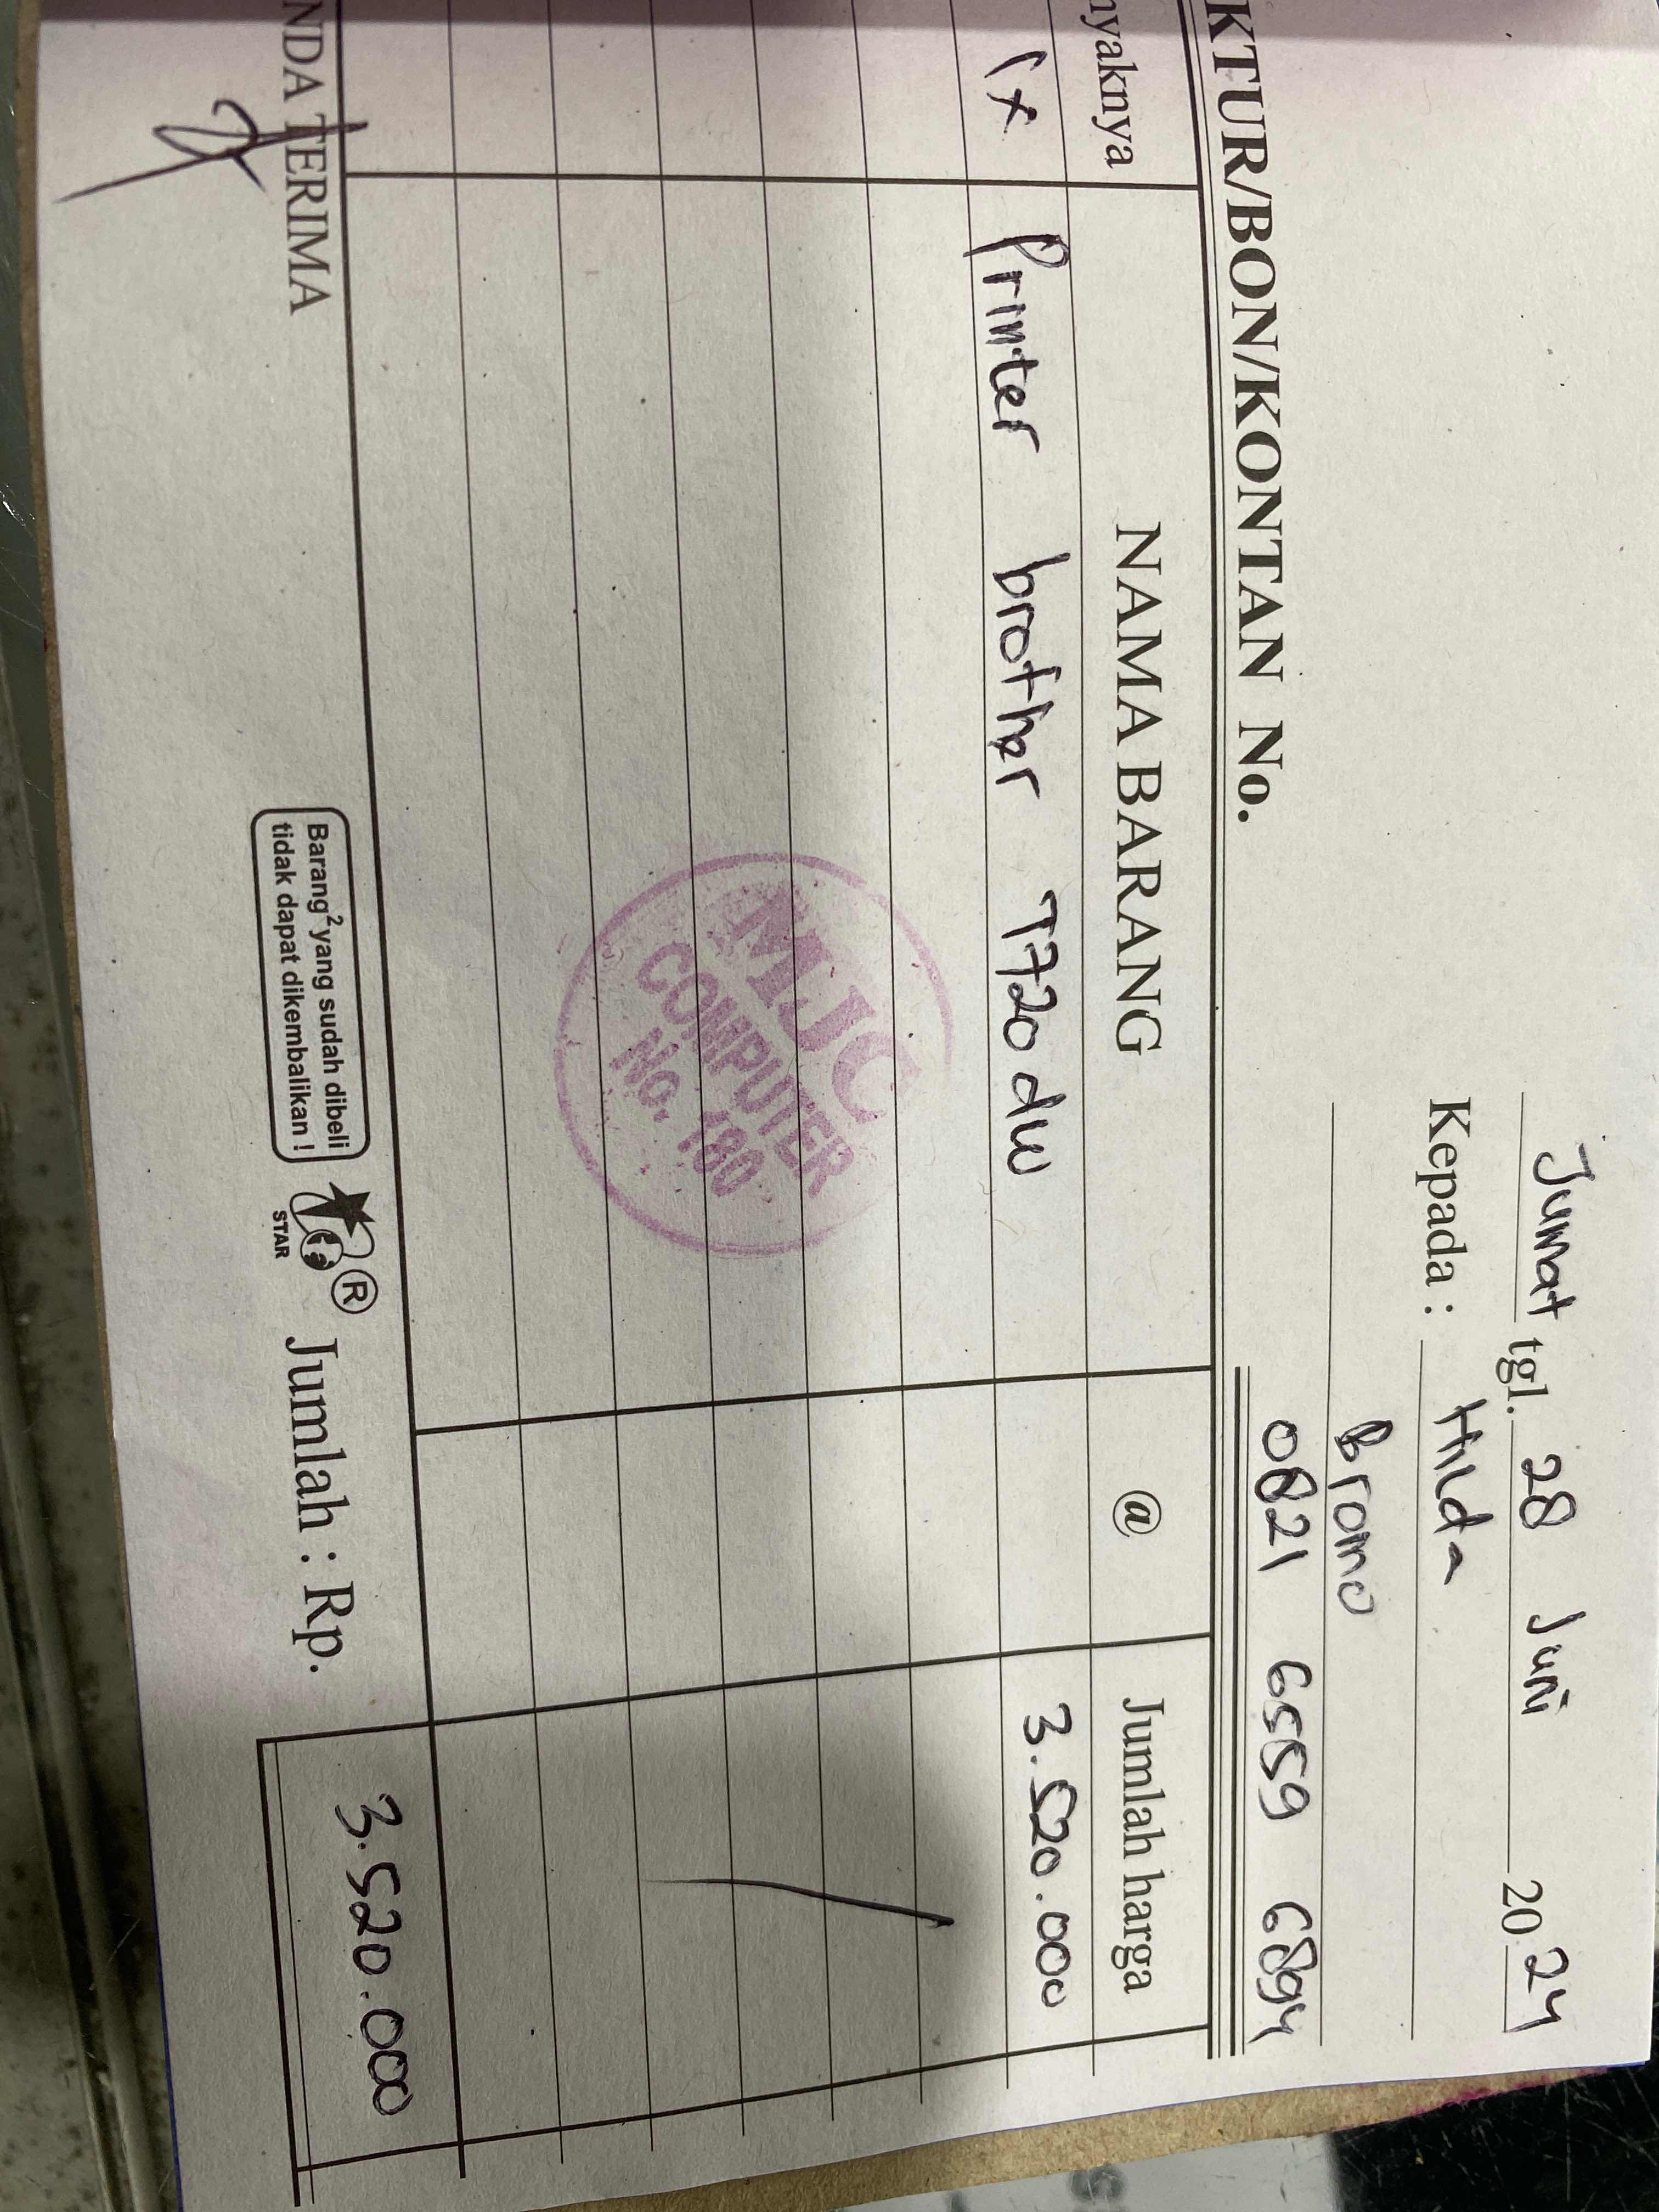 Jumat tgl. 28 Juni 2024
Kepada : Hilda
Bromo
0821 6559 6894
KTUR/BON/KONTAN No.
nyaknya NAMA BARANG @ Jumlah harga
1x Printer brother T720dw 3.520.000
MJC
COMPUTER
No. 180
NDA TERIMA
Barang² yang sudah dibeli
tidak dapat dikembalikan !
STAR
®
Jumlah : Rp. 3.520.000